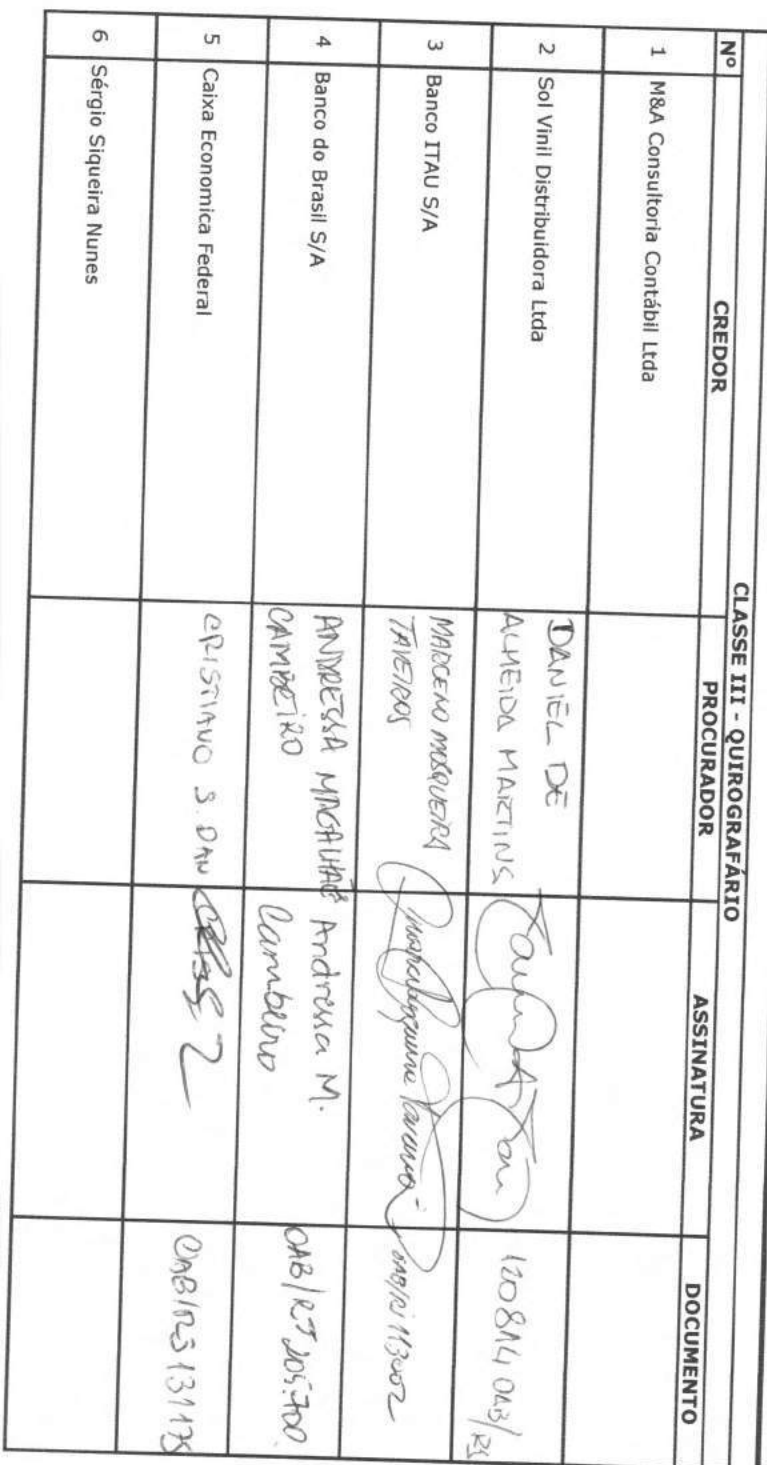 CLASSE III - QUIROGRAFÁRIO
Nº CREDOR PROCURADOR ASSINATURA DOCUMENTO
1 M&A Consultoria Contábil Ltda
2 Sol Vinil Distribuidora Ltda DANIEL DE
ALMEIDA MARTINS
3 Banco ITAU S/A MARCENO MOSQUEIRA
TAVEIROS
4 Banco do Brasil S/A ANDRESSA MAGALHÃES Andressa M.
CAMBEIRO Cambeiro OAB/RJ 205.700
5 Caixa Economica Federal CRISTIANO S. DAN
6 Sérgio Siqueira Nunes